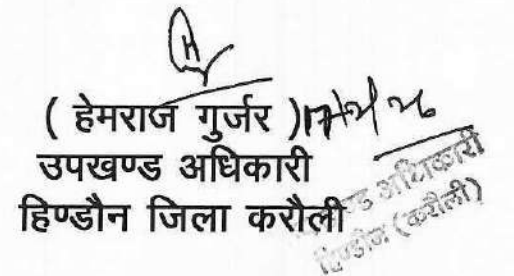 ( हेमराज गुर्जर )
उपखण्ड अधिकारी
हिण्डौन जिला करौली
अधिकारी
हिण्डौन (करौली)